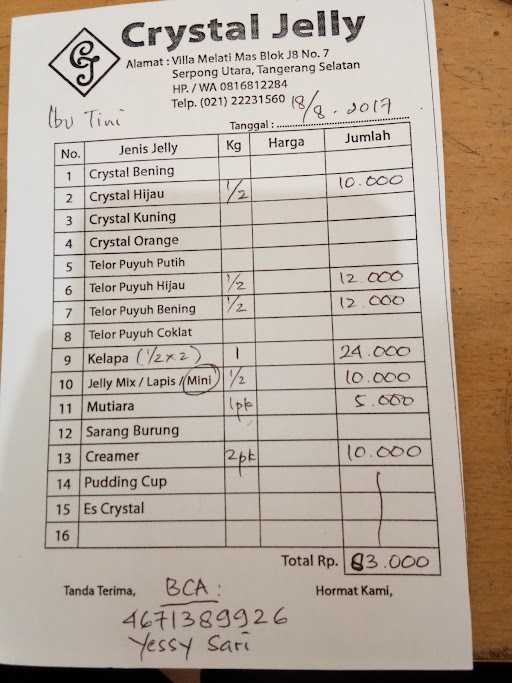 CJ
Crystal Jelly
Alamat : Villa Melati Mas Blok J8 No. 7
Serpong Utara, Tangerang Selatan
HP. / WA 0816812284
Telp. (021) 22231560
Ibu Tini
Tanggal : 18/8 - 2017
No. Jenis Jelly Kg Harga Jumlah
1 Crystal Bening
2 Crystal Hijau 1/2 10.000
3 Crystal Kuning
4 Crystal Orange
5 Telor Puyuh Putih
6 Telor Puyuh Hijau 1/2 12.000
7 Telor Puyuh Bening 1/2 12.000
8 Telor Puyuh Coklat
9 Kelapa (1/2 x 2) 1 24.000
10 Jelly Mix / Lapis / Mini 1/2 10.000
11 Mutiara 1pk 5.000
12 Sarang Burung
13 Creamer 2pk 10.000
14 Pudding Cup
15 Es Crystal
16
Total Rp. 83.000
Tanda Terima, BCA : Hormat Kami,
4671389926
Yessy Sari